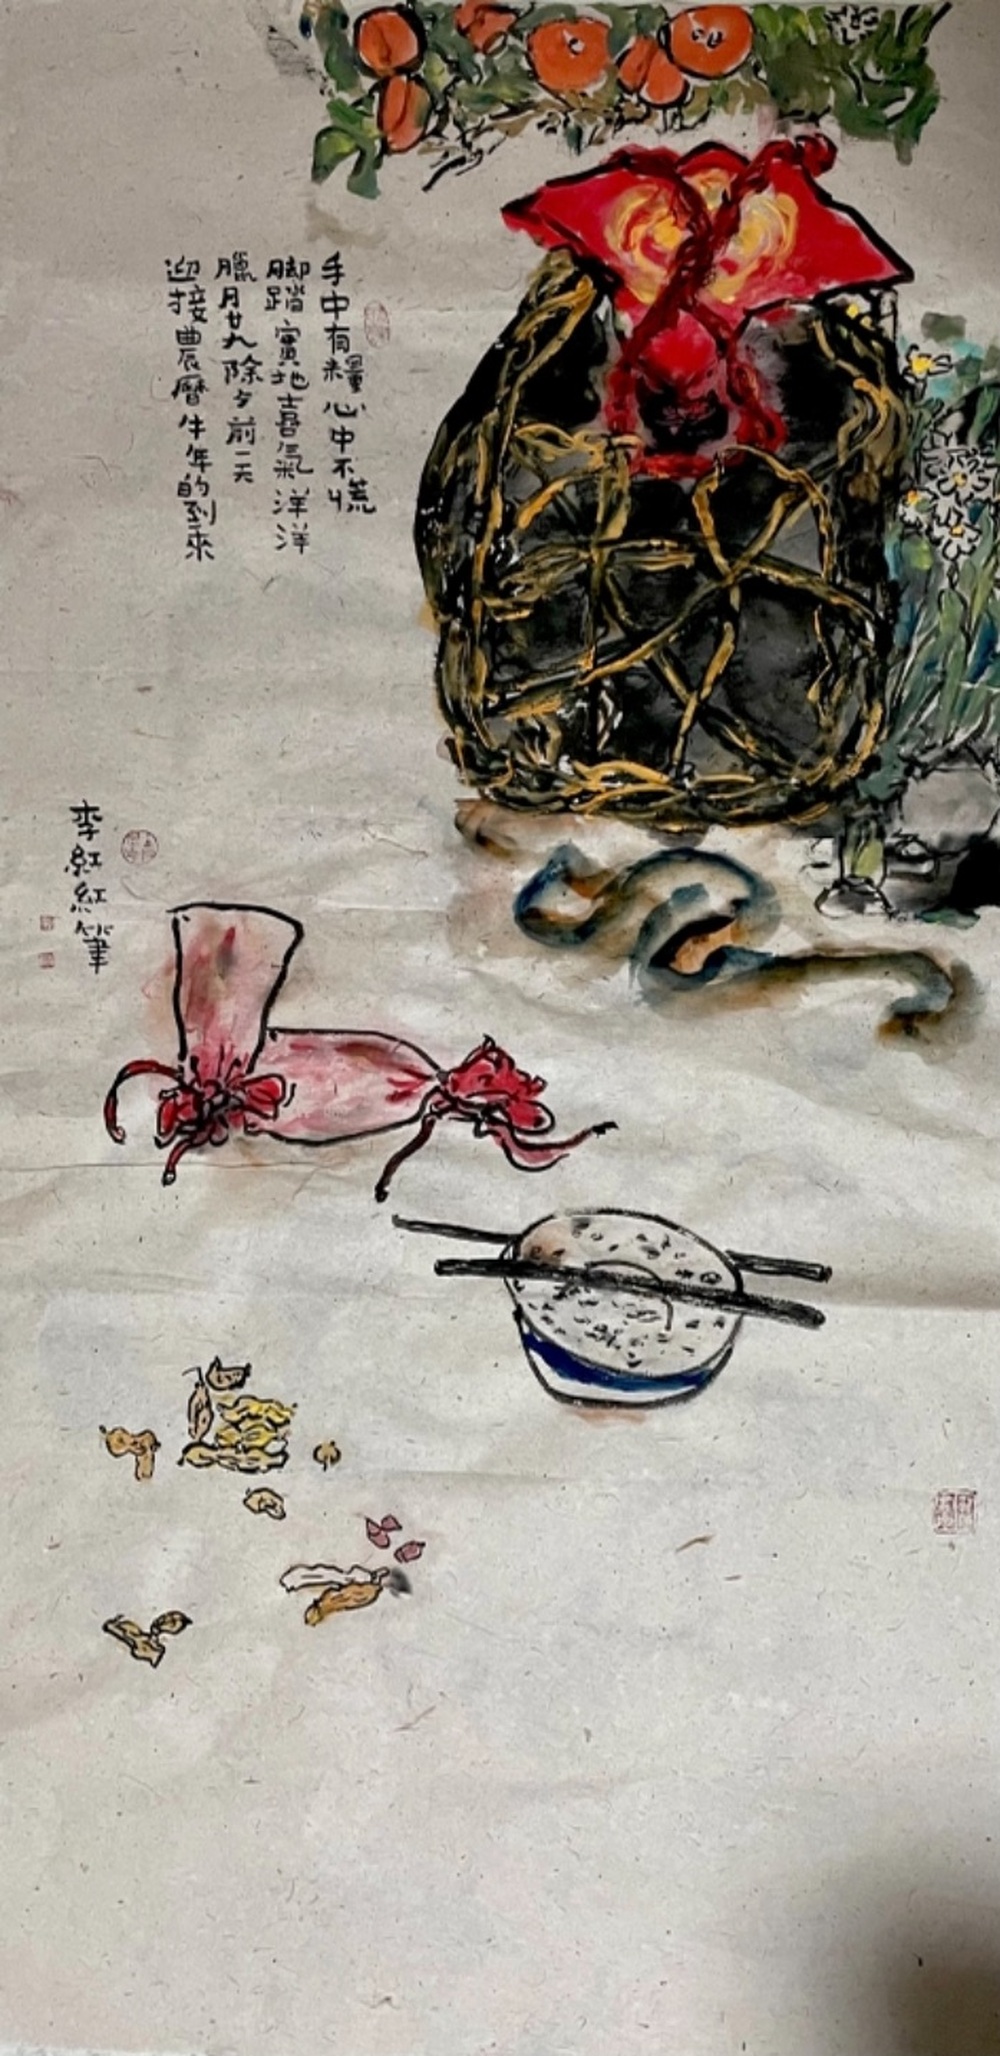 手中有糧心中不慌
脚踏實地喜氣洋洋
臘月廿九除夕前一天
迎接農曆牛年的到來
李紅紅筆